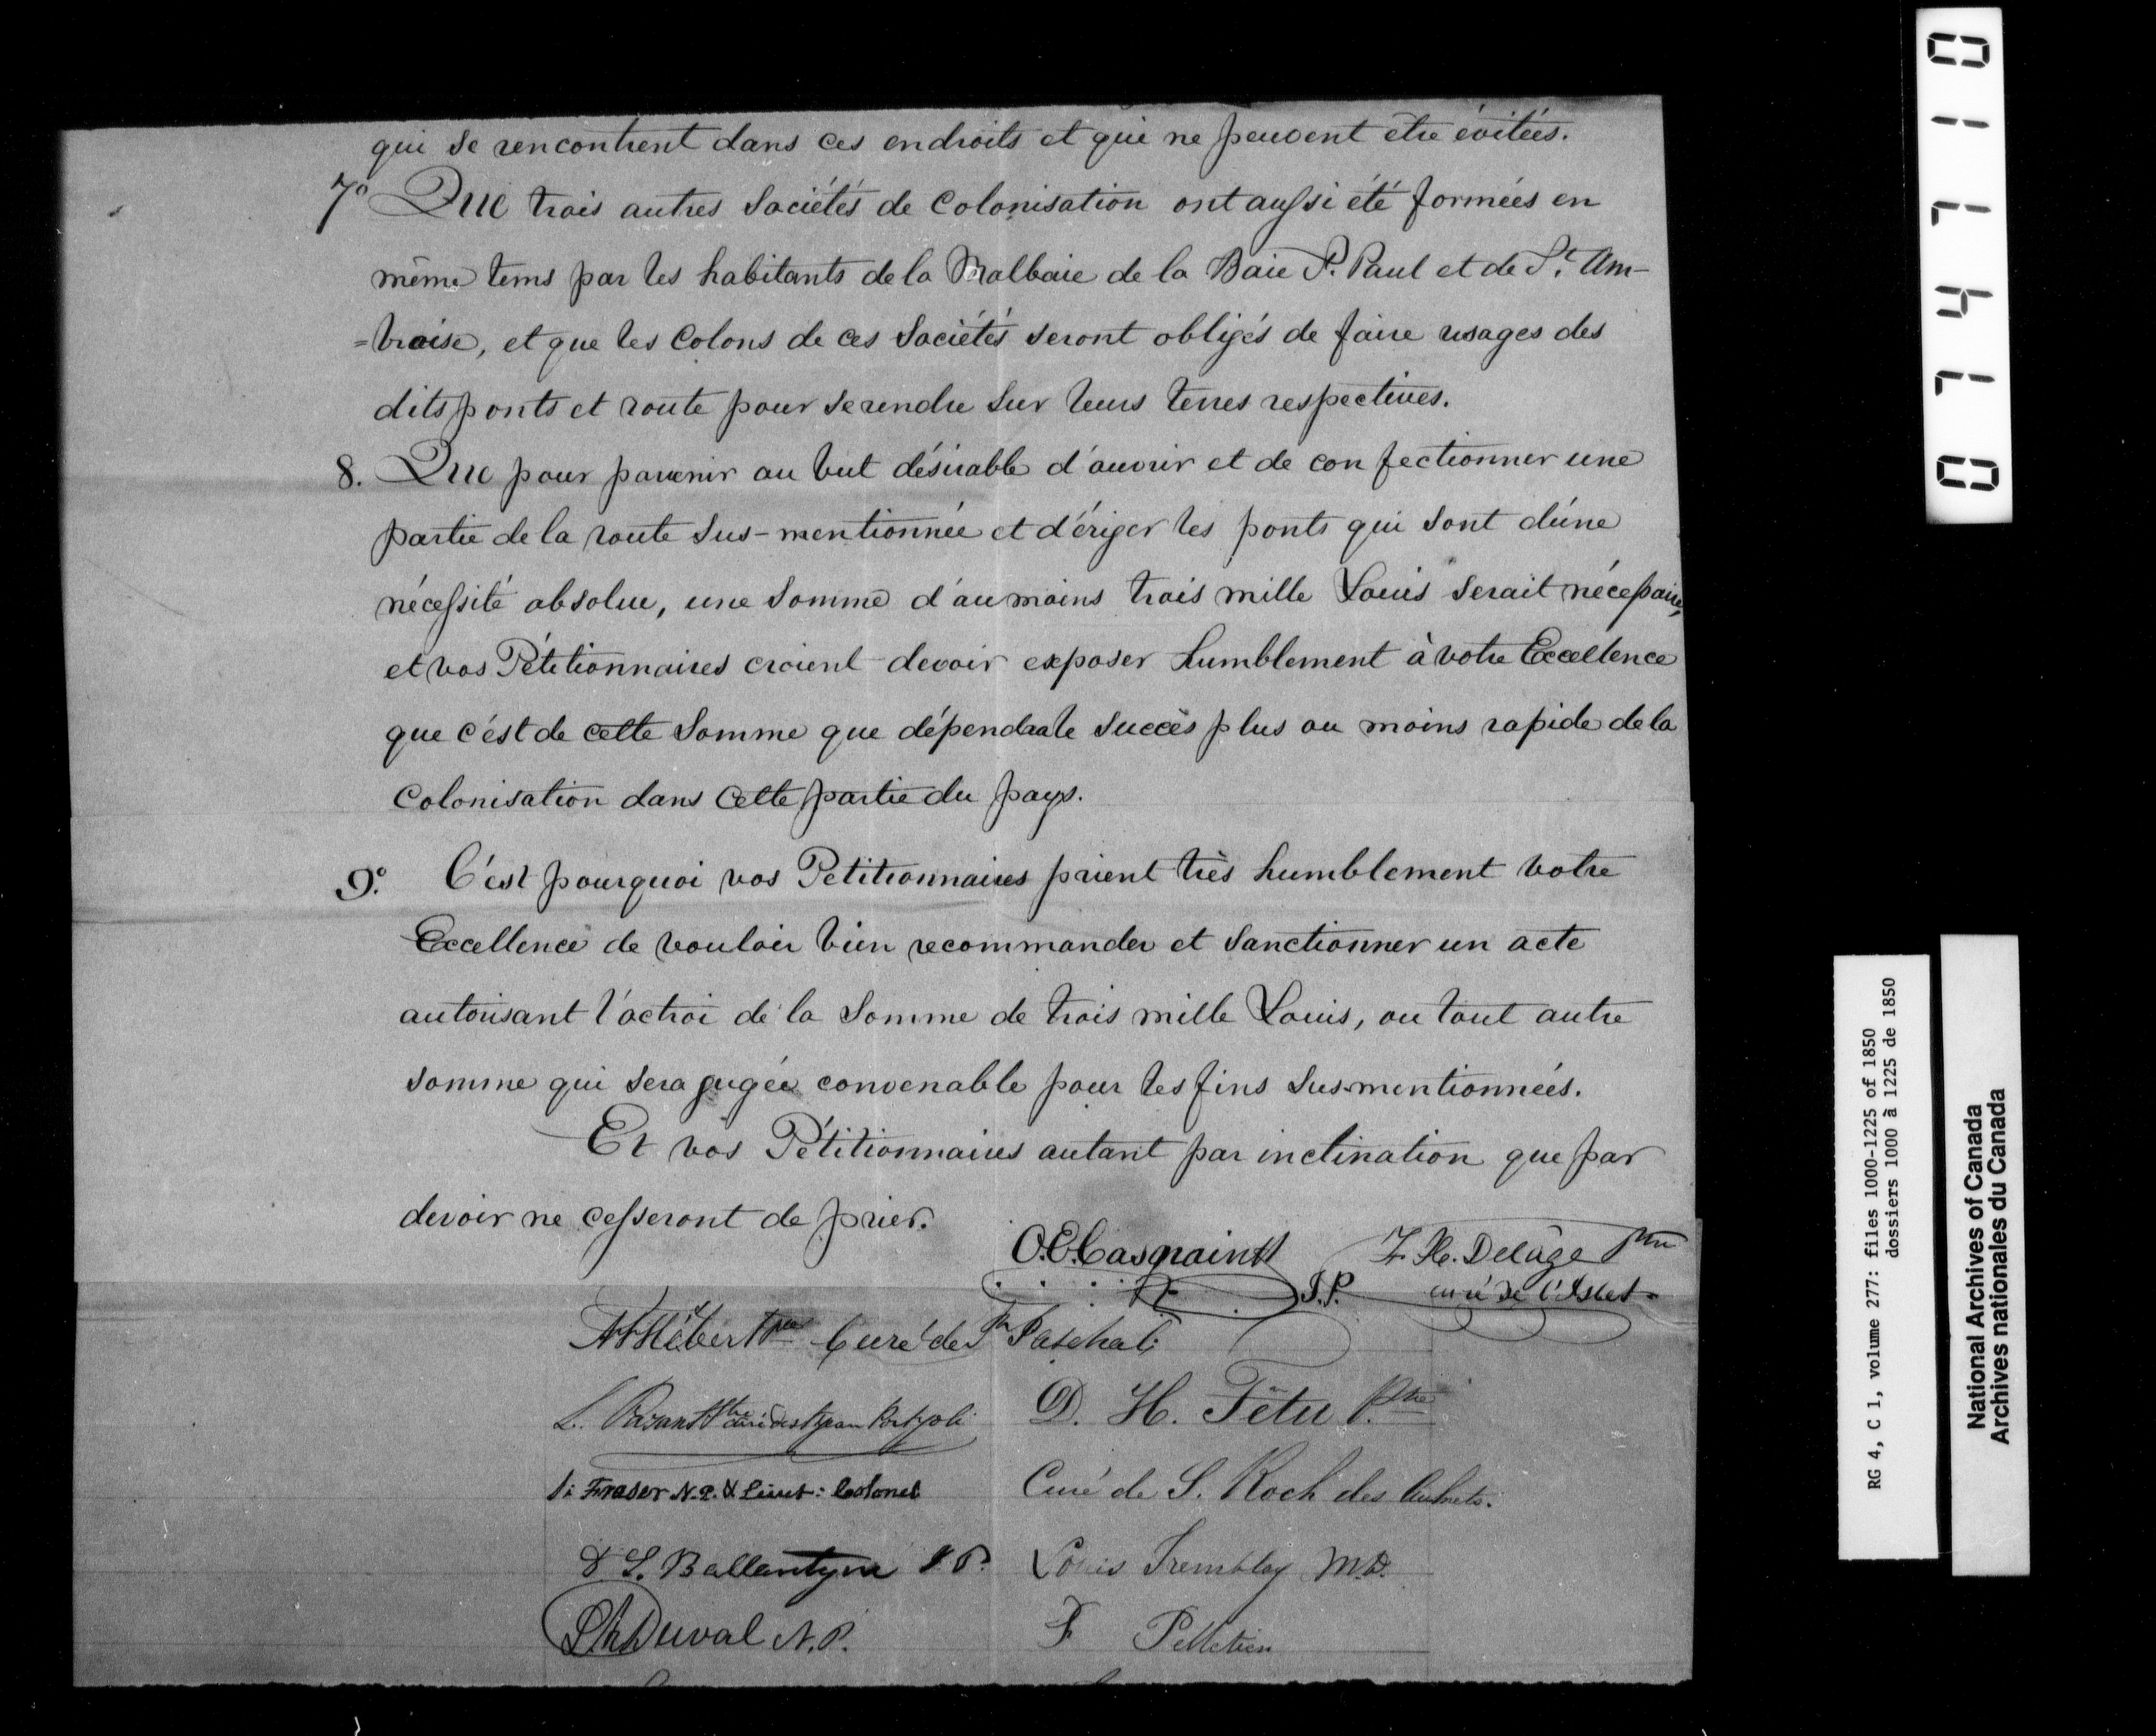 qui se rencontrent dans ces endroits et qui ne peuvent être évitées.
7º Que trois autres Sociétés de Colonisation ont aussi été formées en
même tems par les habitants de la Malbaie de la Baie S. Paul et de St. Am-
=broise, et que les Colons de ces Sociétés seront obligés de faire usages des
dits ponts et route pour se rendre sur leurs terres respectives.
8. Que pour parvenir au but désirable d'ouvrir et de confectionner une
partie de la route sus-mentionnée et d'ériger les ponts qui sont d'une
nécessité absolue, une somme d'au moins trois mille Louis serait nécessaire,
et vos Pétitionnaires croient devoir exposer humblement à votre Excellence
que c'est de cette somme que dépendra le succès plus ou moins rapide de la
Colonisation dans cette partie du pays.
9º. C'est pourquoi vos Petitionnaires prient très humblement votre
Excellence de vouloir bien recommander et sanctionner un acte
autorisant l'octroi de la somme de trois mille Louis, ou tout autre
somme qui sera jugée convenable pour les fins sus-mentionnées.
Et vos Pétitionnaires autant par inclination que par
devoir ne cesseront de prier.
O.E. Casgrain J.P.
F. X. Delâge Ptre
curé de l'Islet.
Hébert Ptre Curé de St Paschal
L. Parant Ptre curé de St Jean Port Joli
D. H. Têtu Ptre
Curé de S. Roch des Aulnets.
Fraser N.P. & Lieut: Colonel
Ballantyne J.P.
Louis Tremblay M.D.
Duval N.P.
F Pelletier
07471 10
RG 4, C 1, volume 277: files 1000-1225 of 1850
dossiers 1000 à 1225 de 1850
National Archives of Canada
Archives nationales du Canada